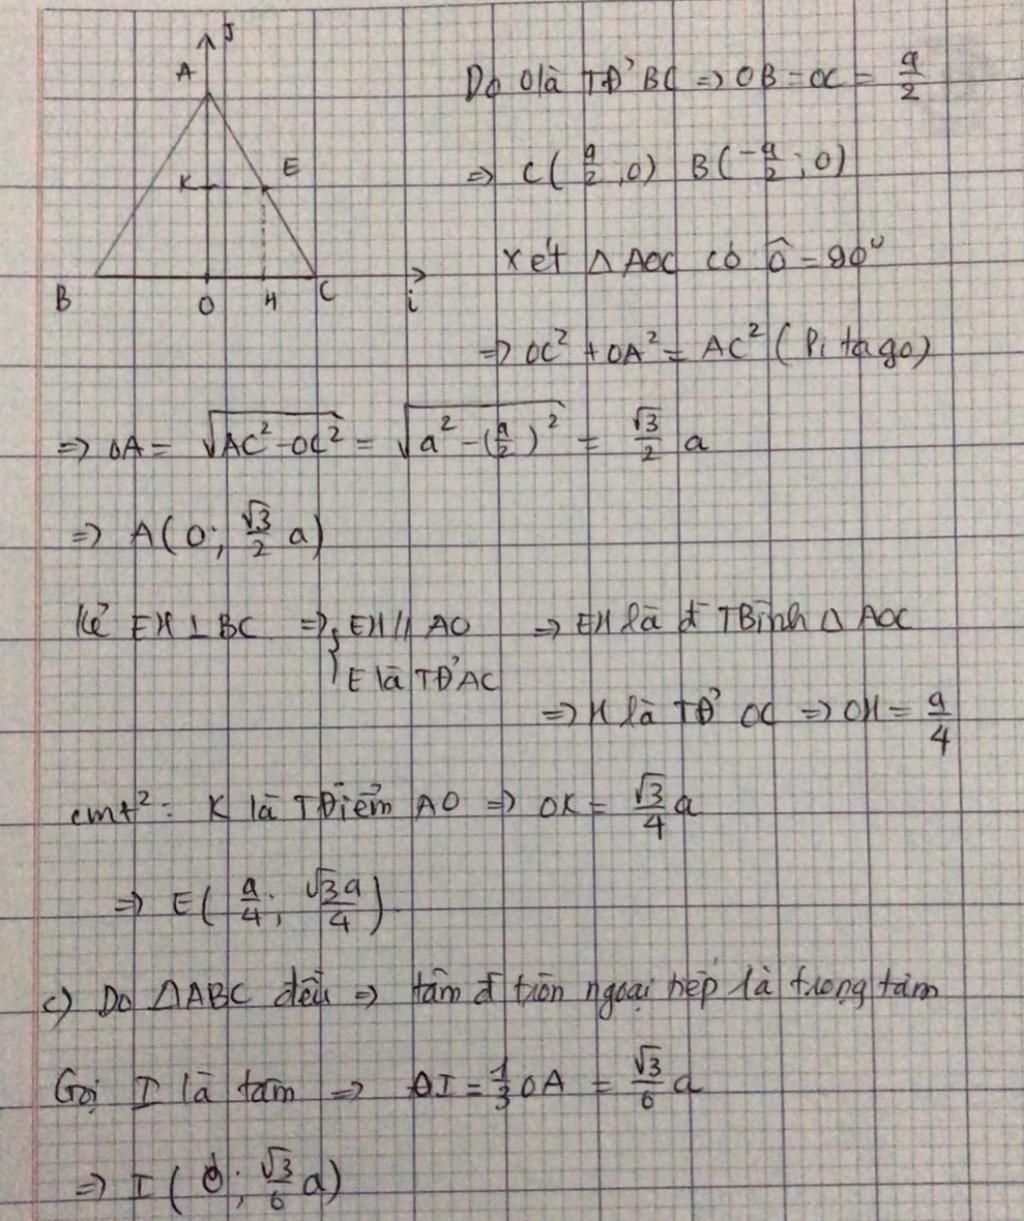 J
A
K
E
B
O
H
C
i
Do O là TĐ' BC => OB = OC = a/2
=> C(a/2; 0) B(-a/2; 0)
Xét △AOC có Ô = 90°
=> OC² + OA² = AC² (Pi ta go)
=> OA = √(AC² - OC²) = √(a² - (a/2)²) = √3/2 a
=> A(0; √3/2 a)
Kẻ EH ⊥ BC => { EH // AO => EH là đ TBình △ AOC
E là TĐ' AC
=> H là TĐ' OC => OH = a/4
cmt²: K là TĐiểm AO => OK = √3/4 a
=> E(a/4; √3a/4)
c) Do △ABC đều => tâm đ tròn ngoại tiếp là trọng tâm
Gọi I là tâm => OI = 1/3 OA = √3/6 a
=> I(0; √3/6 a)